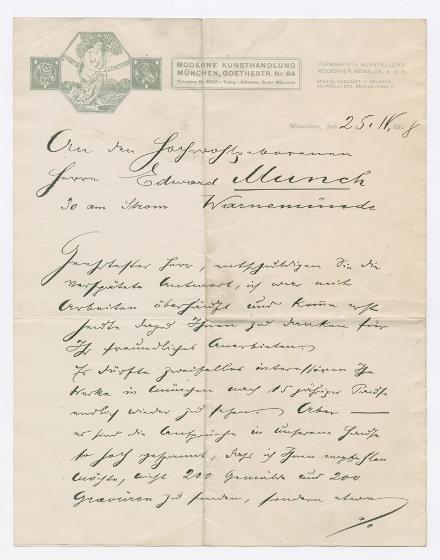 MODERNE KUNSTHANDLUNG
MÜNCHEN, GOETHESTR. Nr. 64
PERMANENTE AUSSTELLUNG
MODERNER GEMÄLDE
München, den 25. IV. 1908
An den Hochwohlgeborenen
Herrn Edward Munch
30 am Strom Warnemünde
Geehrtester Herr, entschuldigen Sie die
verspätete Antwort, ich war mit
Arbeiten überhäuft und komme erst
heute dazu Ihnen zu danken für
Ihr freundliches Anerbieten.
Es dürfte zweifellos interessiren Ihre
Werke in München nach 15 jähriger Pause
endlich wieder zu sehen. Aber —
es sind die Ansprüche in unserem Hause
so hoch gespannt, dass ich Ihnen empfehlen
möchte, nicht 200 Gemälde und 200
Gravüren zu senden, sondern etwa